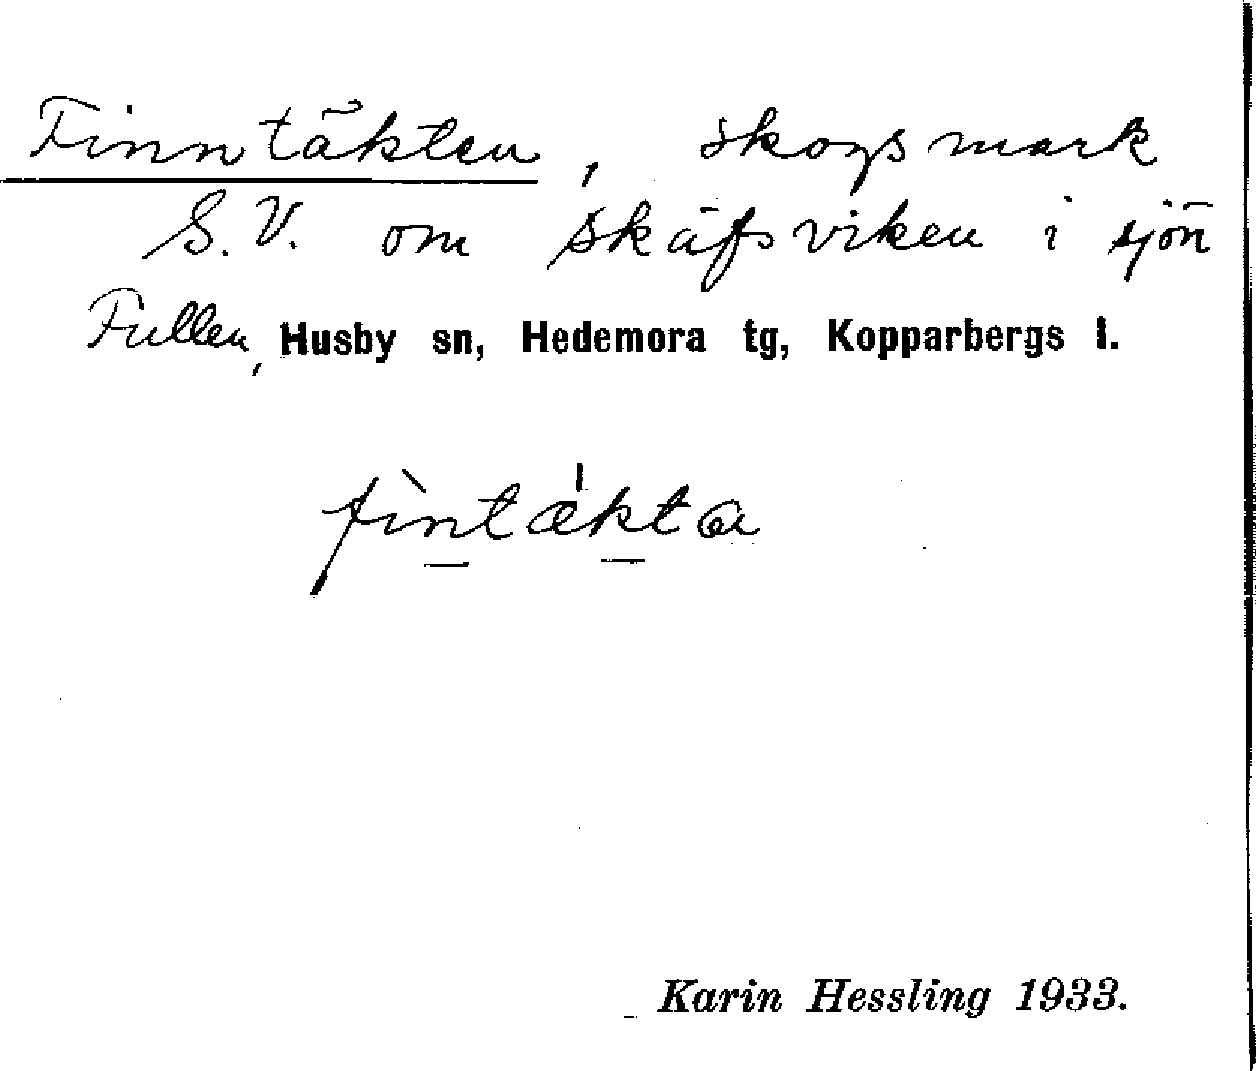 Finntäkten, skogsmark
S.V. om Skäfsviken i sjön
Fullen, Husby sn, Hedemora tg, Kopparbergs l.
fìntækta
Karin Hessling 1933.